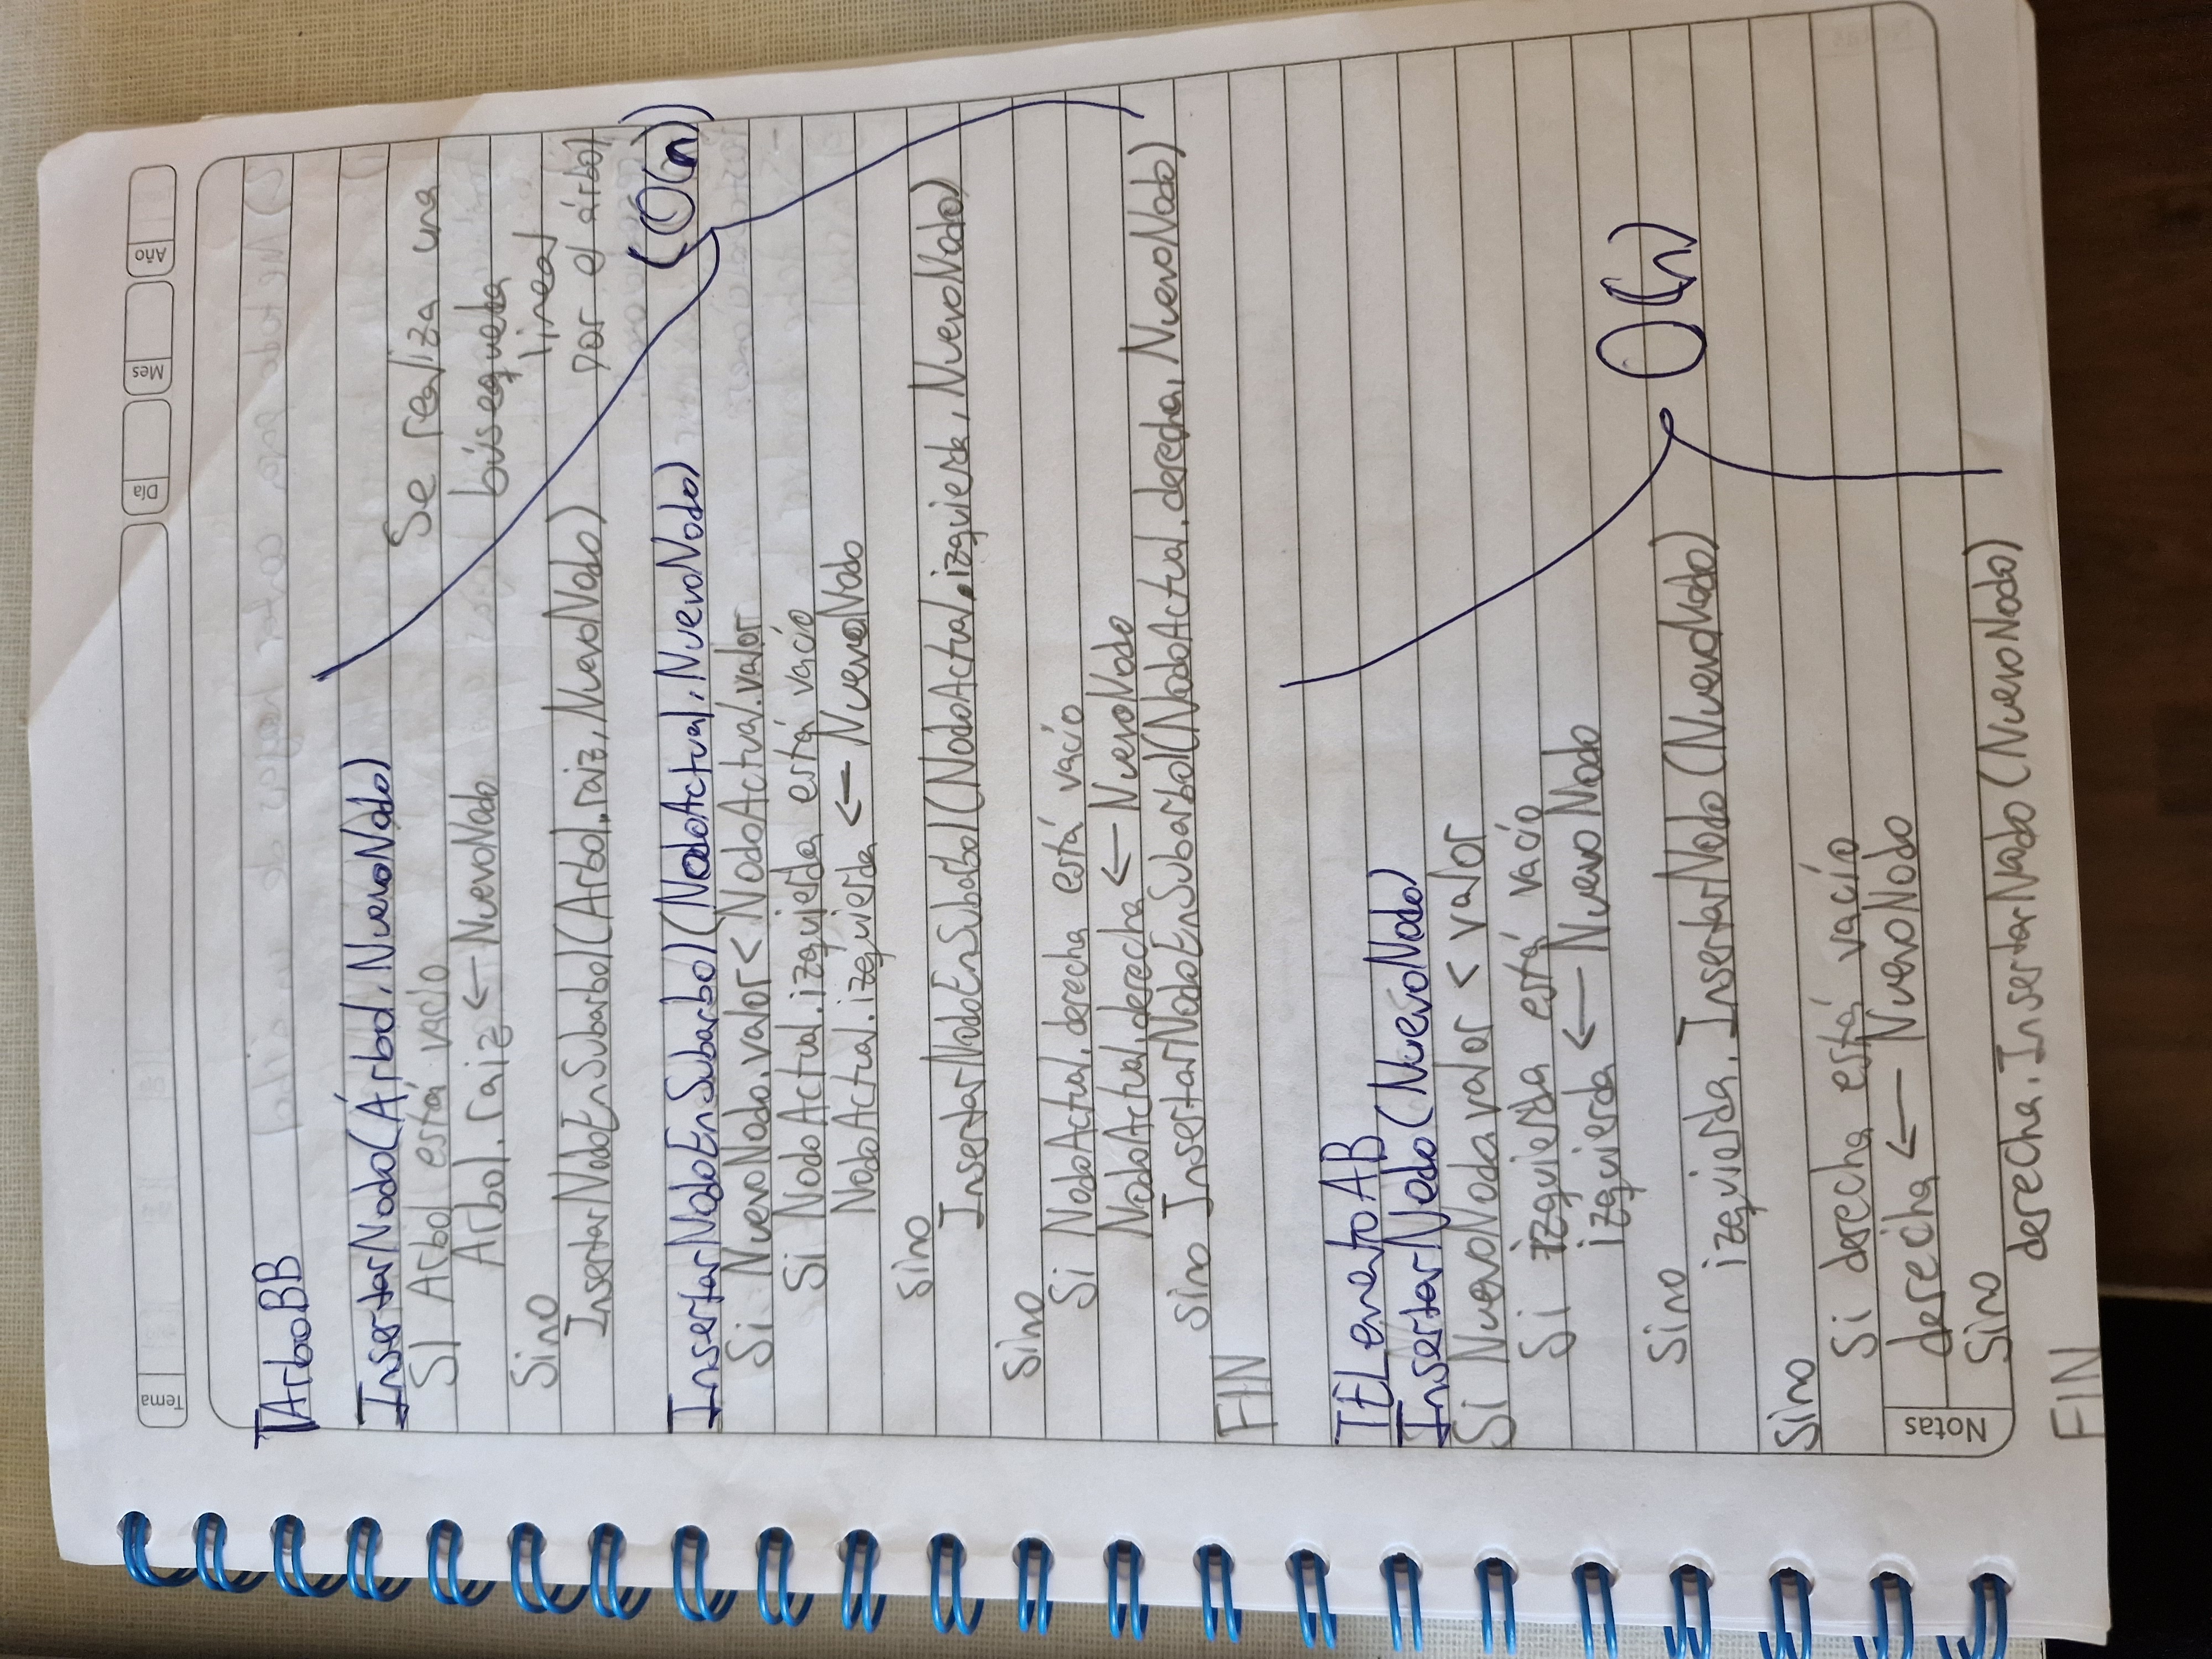 Tema
Día
Mes
Año
TArboBB
InsertarNodo(Árbol, NuevoNodo)
SI Arbol está vacío
Arbol.raiz ← NuevoNodo
Sino
InsertarNodoEnSubarbol(Arbol.raiz, NuevoNodo)
Se realiza una
búsequeda
lineal
por el árbol
(O(n))
InsertarNodoEnSubarbol(NodoActual, NuevoNodo)
Si NuevoNodo.valor < NodoActual.valor
Si NodoActual.izquierda está vacío
NodoActual.izquierda ← NuevoNodo
sino
InsertarNodoEnSubarbol(NodoActual.izquierda, NuevoNodo)
sino
Si NodoActual.derecha está vacío
NodoActual.derecha ← NuevoNodo
sino InsertarNodoEnSubarbol(NodoActual.derecha, NuevoNodo)
FIN
TELementoAB
InsertarNodo(NuevoNodo)
Si NuevoNodo.valor < valor
Si izquierda está vacío
izquierda ← NuevoNodo
Sino
izquierda.InsertarNodo(NuevoNodo)
O(n)
Sino
Si derecha está vacío
derecha ← NuevoNodo
Sino
derecha.InsertarNodo(NuevoNodo)
FIN
Notas